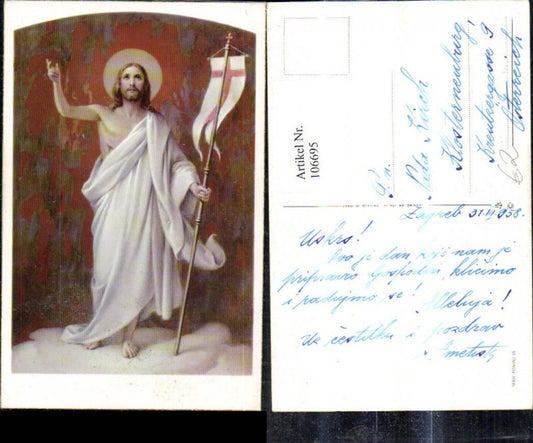 Artikel Nr.
106695
P. n.
Rada Kirch
Klosterneuburg
Kreuzbergasse 9
Österreich
Zagreb 31.III.958.
Uskrs!
Ovo je dan koji nam je
pripravio Gospodin, kličimo
i radujmo se! Alleluja!
Uz čestitku i pozdrav